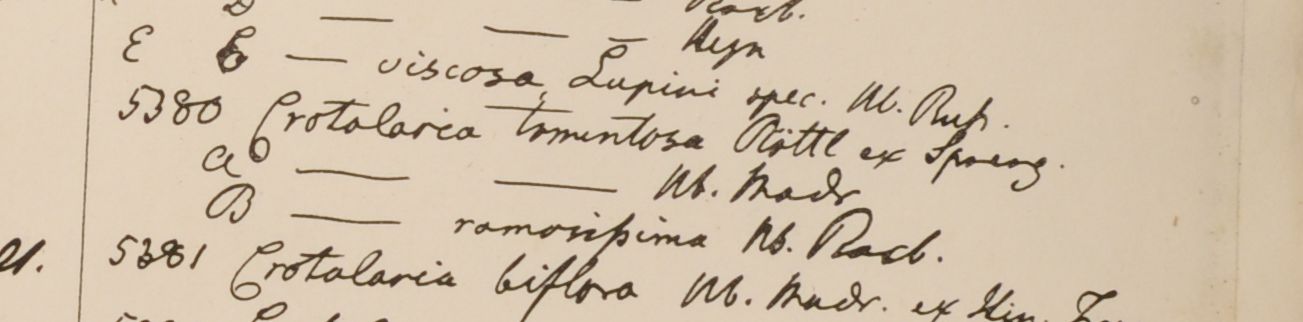 D — — Roxb.
E E — — — Heyn
— viscosa, Lupini spec. Hb. Russ.
5380 Crotalaria tomentosa Röttl ex Spreng.
a — — Hb. Madr
B — ramosissima Hb. Roxb.
5381 Crotalaria biflora Hb. Madr. ex Itin.